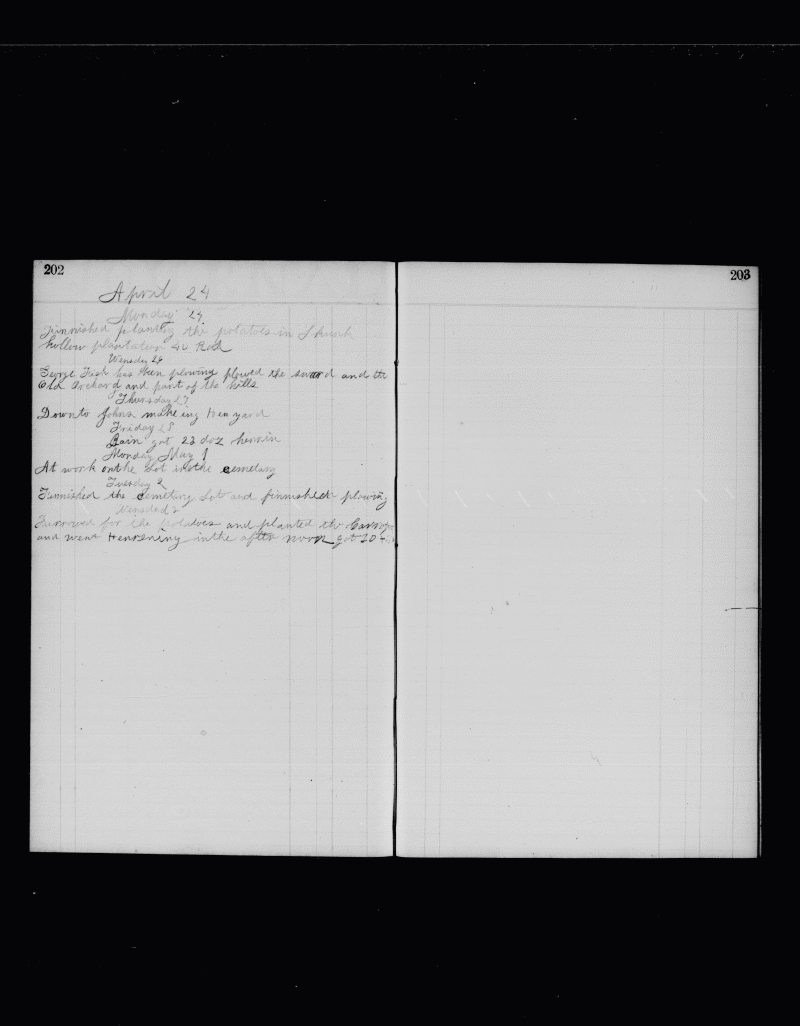 202
April 24
Monday 24
Finnished planting the potatoes in Skunk
hollow plantation 40 Rod
Wensday 26
George Fish has been plowing plowed the sward and the
Old Orchard and part of the hills
Thursday 27
Down to Johns makeing Hen yard
Friday 28
Rain got 23 doz herrin
Monday May 1
At work onthe Lot inthe cemetary
Tuesday 2
Finnished the cemetery Lot and finnished plowing
Wensdad
Furrowed for the potatoes and planted the
and went Henrening inthe after noon got 20
203